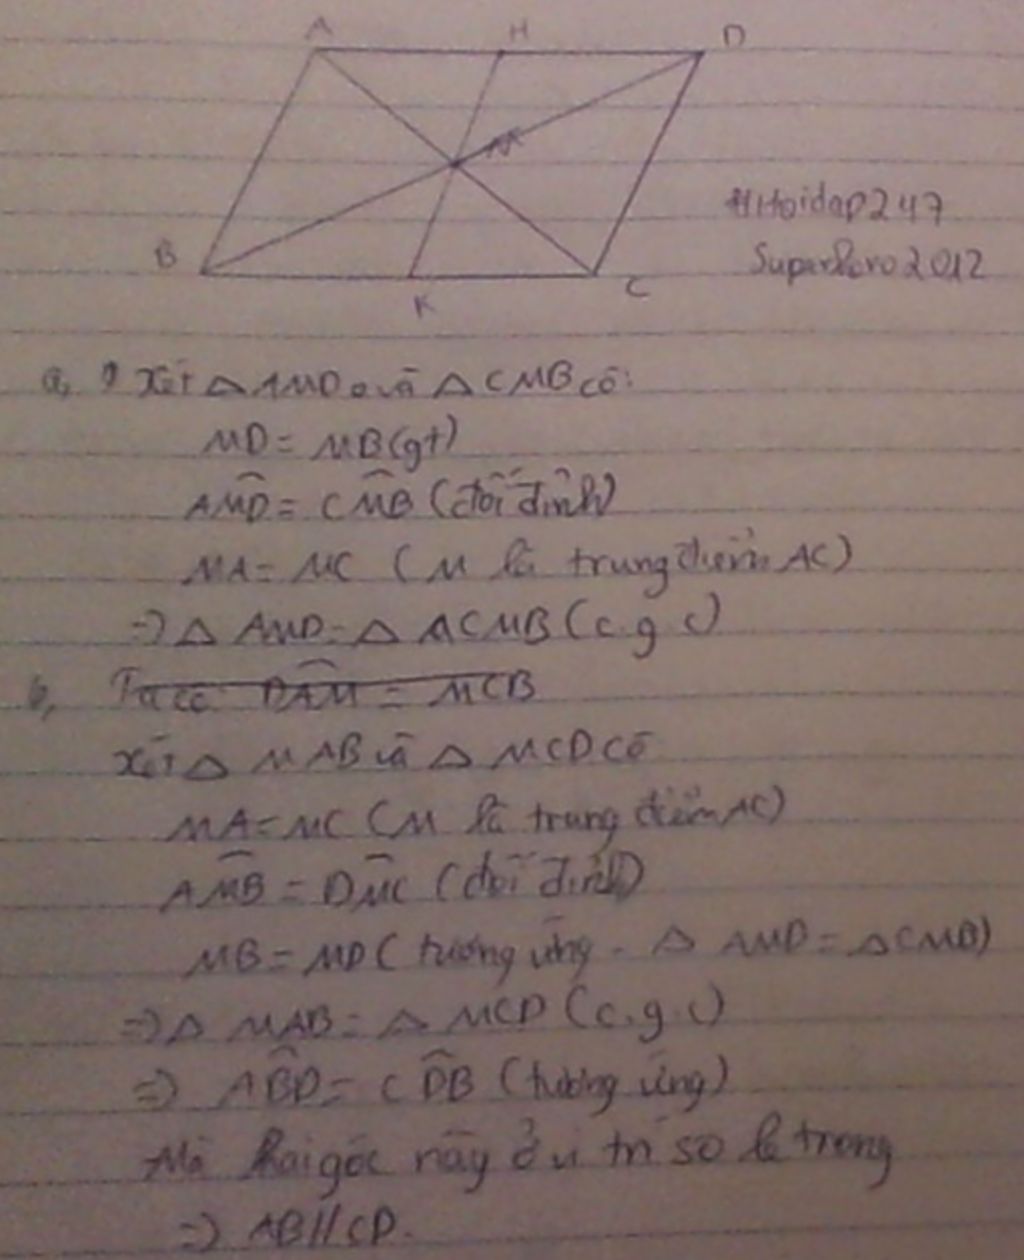 A H D
M
#Hoidap247
B
Superhero2012
K C
a, Xét △ AMD và △ CMB có:
MD = MB (gt)
AM̂D = CM̂B (đối đỉnh)
MA = MC (M là trung điểm AC)
=> △ AMD = △ ACMB (c.g.c)
b, Ta có DÂM = MCB
Xét △ MAB và △ MCD có
MA = MC (M là trung điểm AC)
AM̂B = DM̂C (đối đỉnh)
MB = MD (tương ứng - △ AMD = △ CMB)
=> △ MAB = △ MCD (c.g.c)
=> AB̂D = CD̂B (tương ứng)
Mà hai góc này ở vị trí so le trong
=> AB // CD.